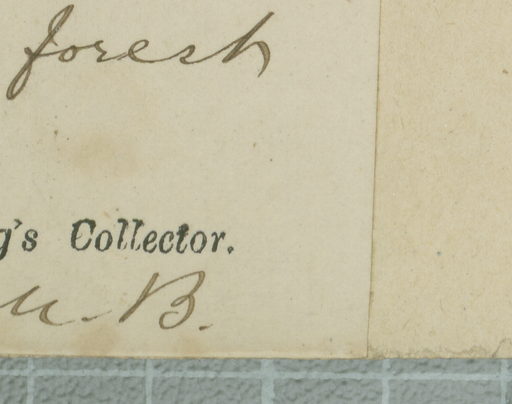 forest
g's Collector.
B.